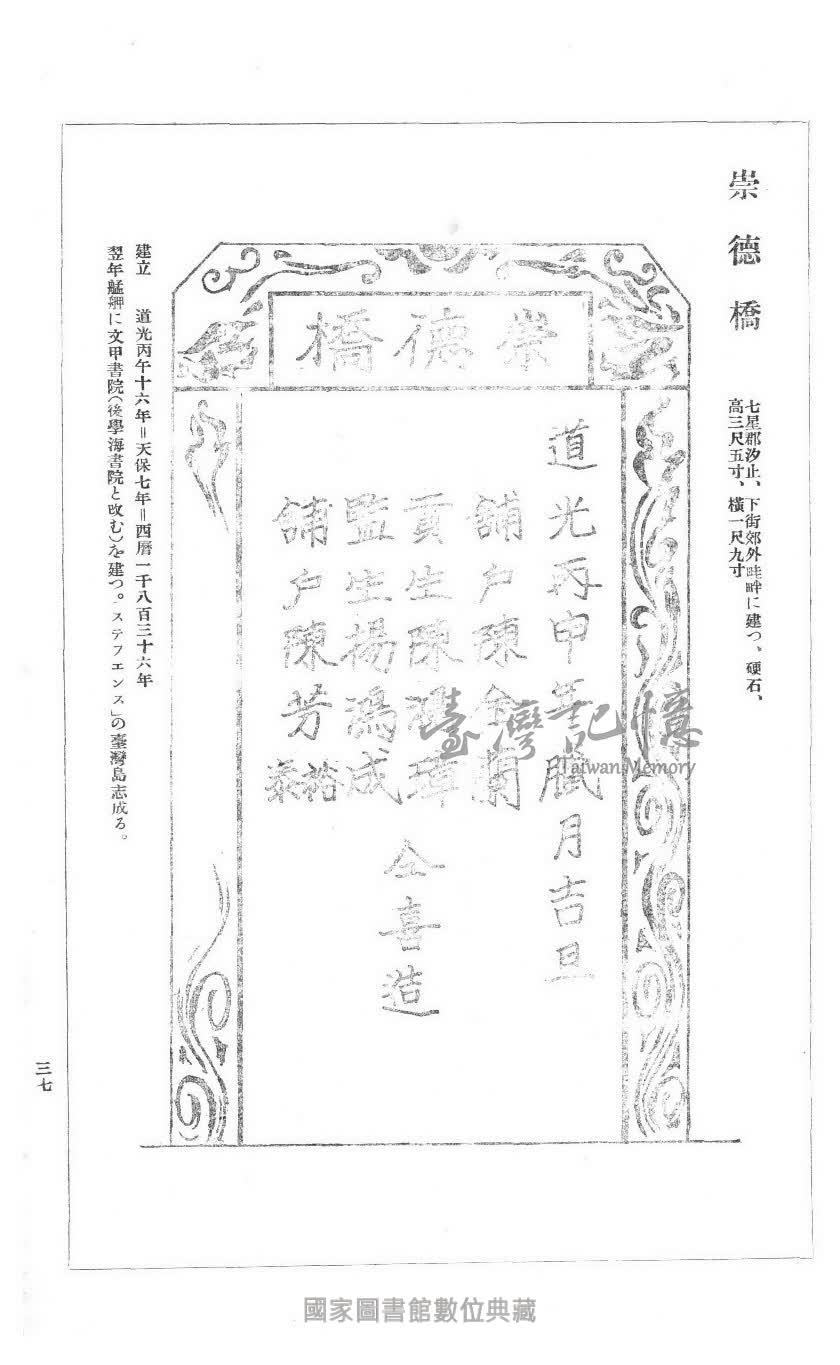 崇德橋
七星郡汐止、下街郊外畦畔に建つ、硬石、
高三尺五寸、橫一尺九寸
崇德橋
道光丙申年臘月吉旦
舖戶陳金蘭
貢生陳 璋
監生揚鴻成
舖戶陳芳裕泰
仝喜造
建立 道光丙午十六年＝天保七年＝西曆一千八百三十六年
翌年艋舺に文甲書院(後學海書院と改む)を建つ。「ステフエンス」の臺灣島志成る。
三七
臺灣記憶
Taiwan Memory
國家圖書館數位典藏